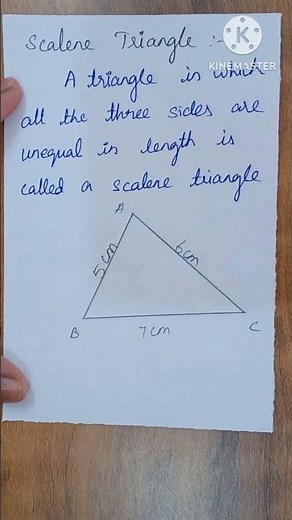 Scalene Triangle :-
A triangle is which
all the three sides are
unequal in length is
called a scalene triangle
A
5cm
6cm
B
7cm
C
K
KINEMASTER